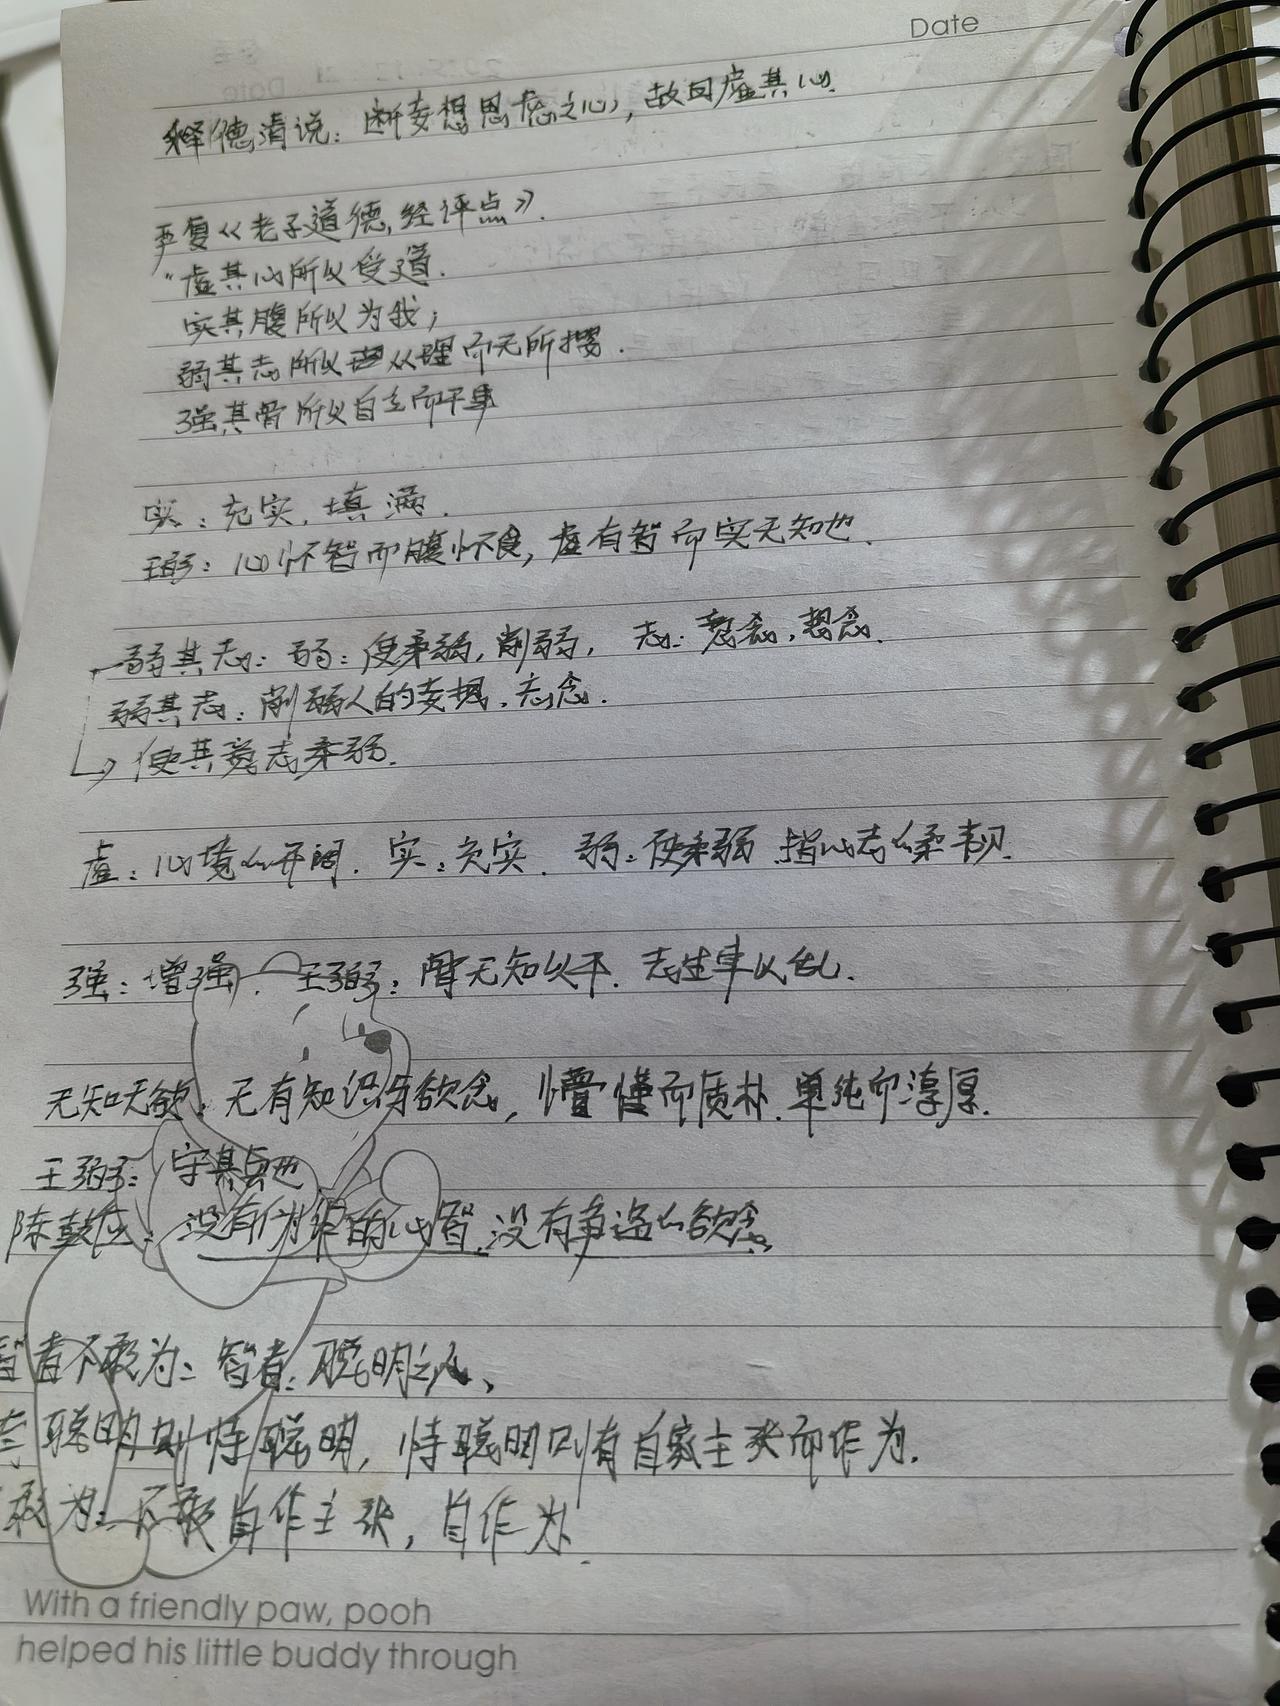 Date
释德清说：断妄想思虑之心，故曰虚其心．
严复《老子道德经评点》．
"虚其心所以受道．
实其腹所以为我；
弱其志所以从理而无所撄．
强其骨所以自立而干事
实：充实．填满．
王弼：心怀智而腹怀食，虚有智而实无知也．
弱其志：弱：使柔弱，削弱， 志：意念，想念．
弱其志：削弱人的妄想．志念．
使其意志柔弱．
虚：心境的开阔． 实：充实． 弱：使柔弱 指心志的柔韧．
强：增强． 王弼：骨无知以干．志生事以乱．
无知无欲：无有知识与欲念，懵懂而质朴．单纯而淳厚．
王弼：守其真也
陈鼓应：没有伪诈的心智．没有争盗的欲念．
智者不敢为：智者：聪明之人、
聪明则恃聪明，恃聪明则有自家主张而作为．
敢为：不敢自作主张，自作为．
With a friendly paw, pooh
helped his little buddy through